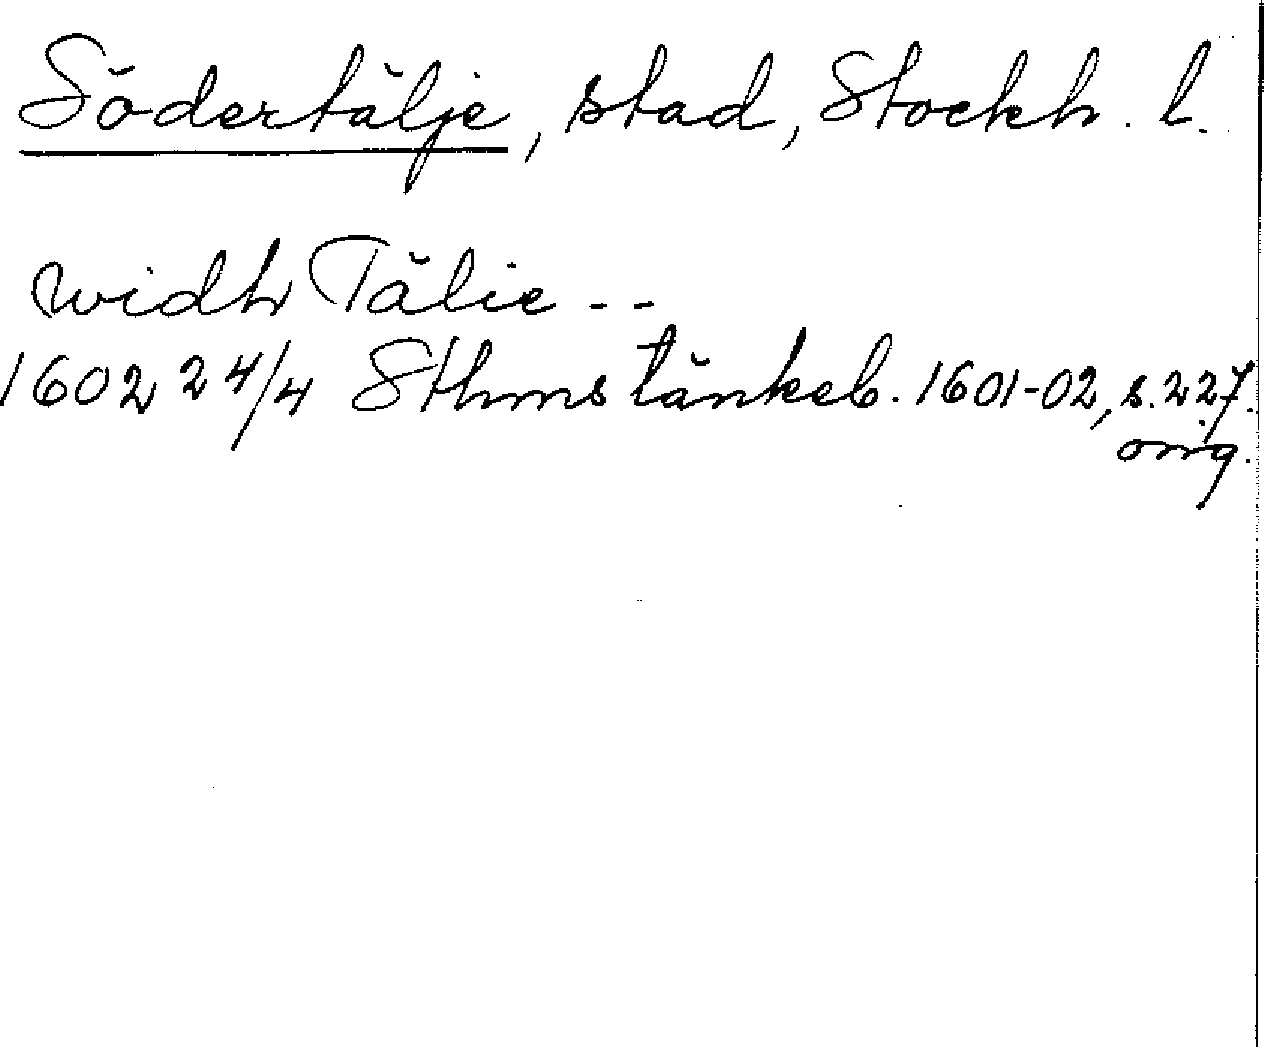 Södertälje, stad, Stockh. l.
widh Tälie --
1602 24/4 Sthms tänkeb. 1601-02, s. 227.
orig.